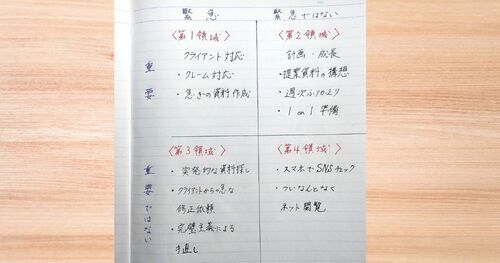 緊急
緊急ではない
重要
〈第1領域〉
クライアント対応
・クレーム対応
・急ぎの資料作成
〈第2領域〉
計画・成長
・提案資料の構想
・週次ふりかえり
・1 on 1 準備
重要ではない
〈第3領域〉
・突発的な資料探し
・クライアントからの急な
修正依頼
・完璧主義による
手直し
〈第4領域〉
・スマホでSNSチェック
・ついなんとなく
ネット閲覧